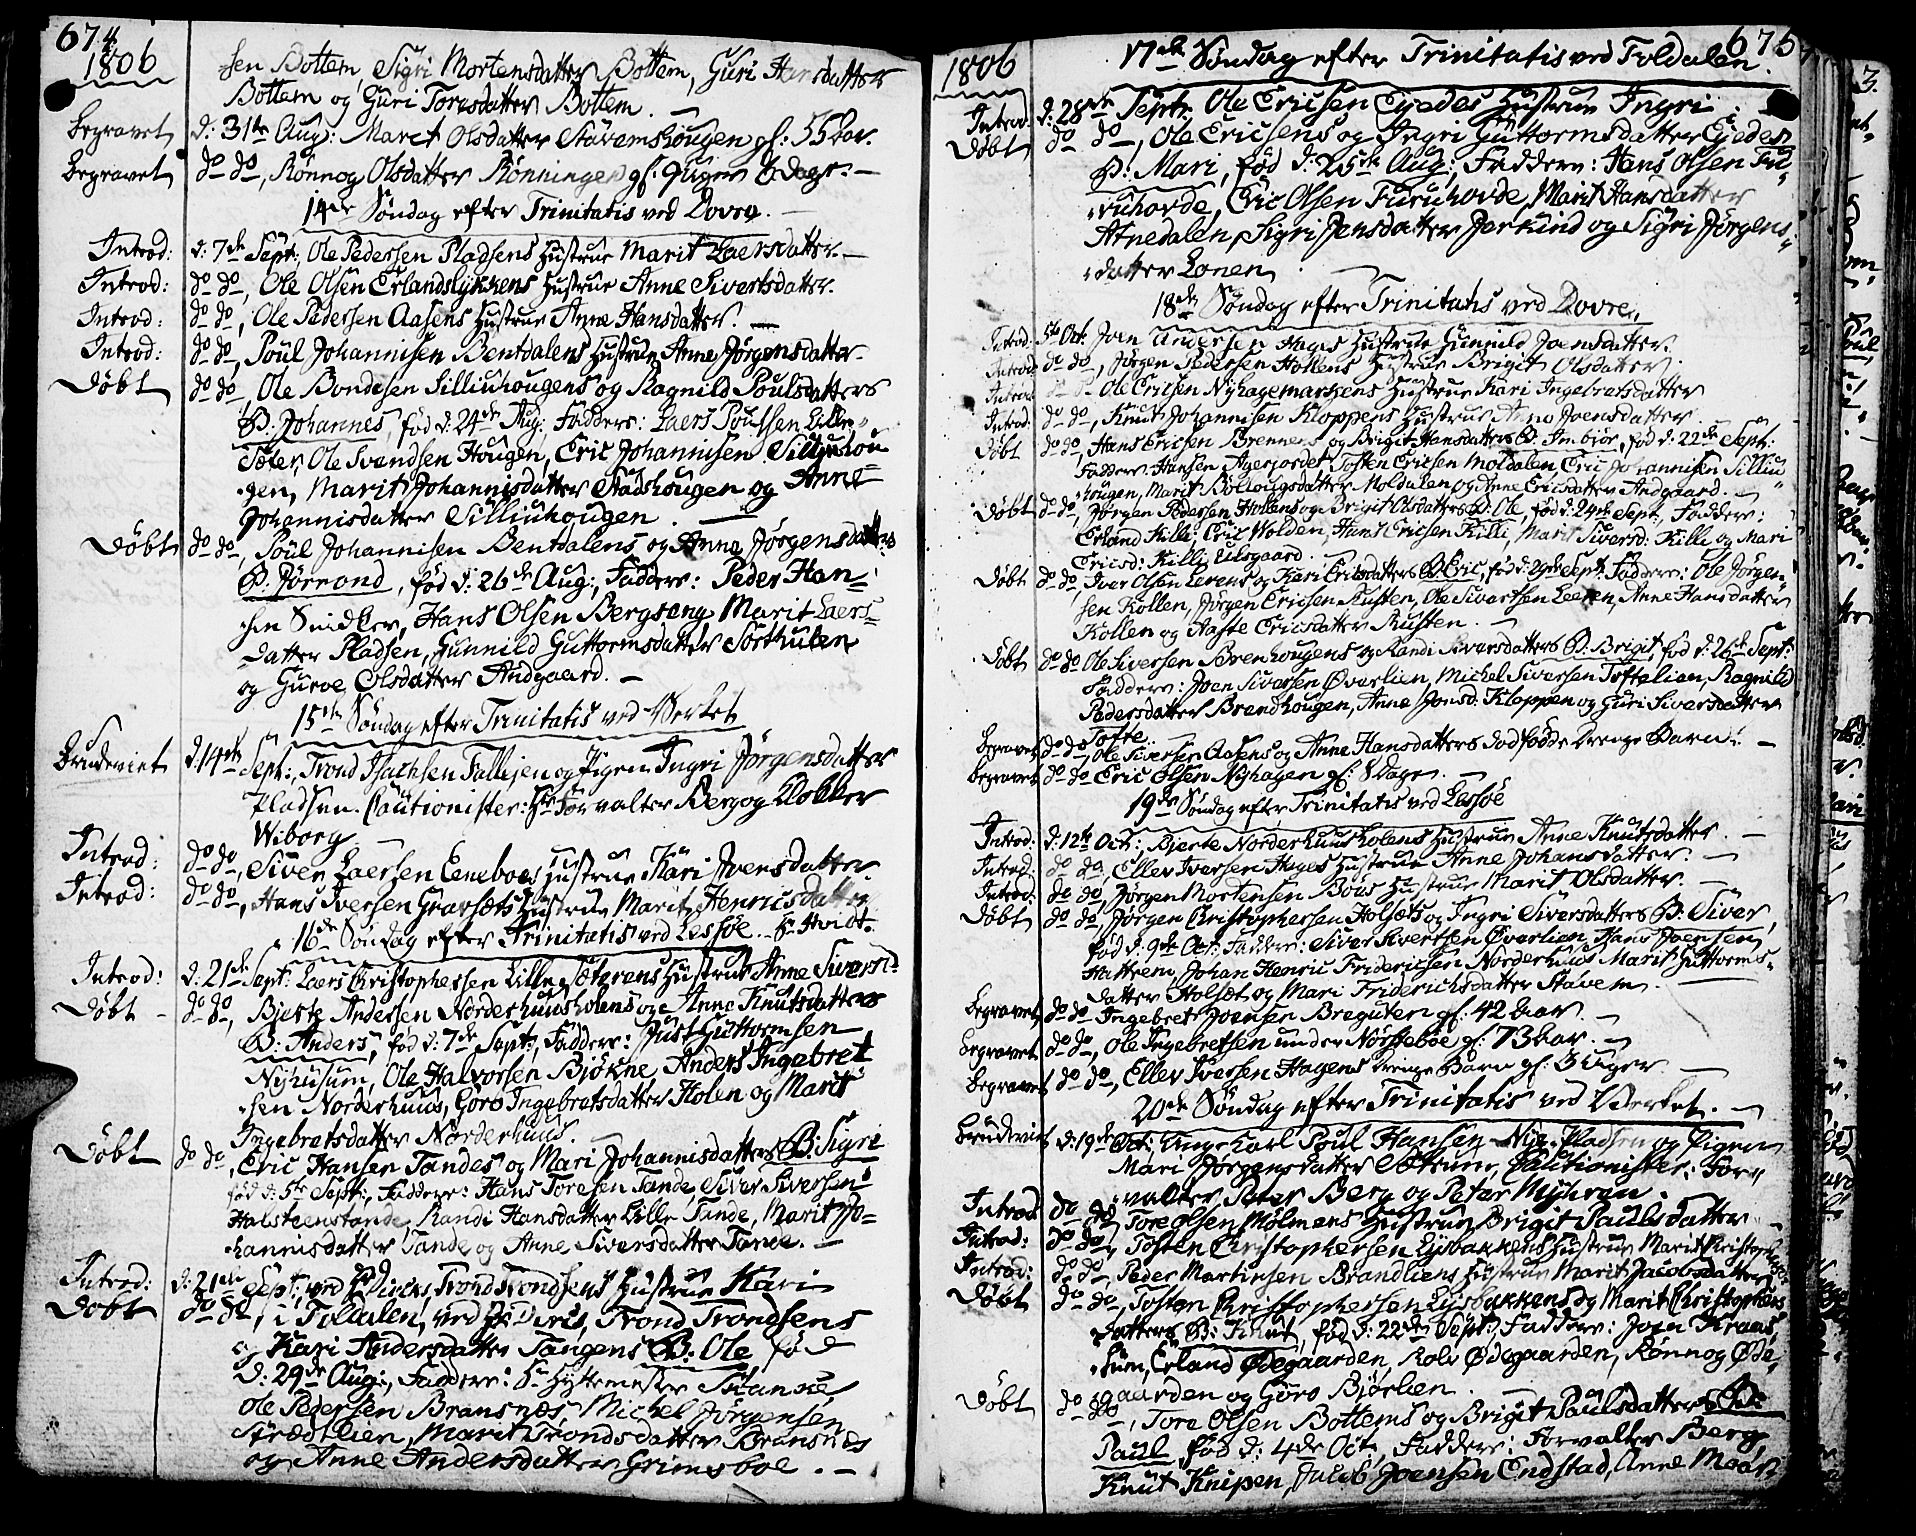 674
1806
sen Bottem, Sigri Mortensdatter Bottem, Guri Hansdatter
Bottem og Guri Toresdatter Bottem. —
Begravet d: 31te Aug: Marit Olsdatter Stavemshougen gl: 55 Aar.
Begravet do do, Rønnog Olsdatter Rønningen gl: 9 uger 6 dage. —
14de Søndag efter Trinitatis ved Dovre. —
Introd: d: 7de Sept: Ole Pedersen Pladsens Hustrue Marit Laersdatter. —
Introd: do do, Ole Olsen Erlandslykkens Hustrue Anne Sivertsdatter.
Introd: do do, Ole Pedersen Aasens Hustrue Anne Hansdatter. —
Introd: do do, Poul Johannisen Bentdalens Hustrue Anne Jørgensdatter
Døbt do do, Ole Bondesen Silliuhougens og Ragnild Poulsdatters
B: Johannes, fød d: 24de Aug: Faddere: Laers Poulsen Lille-
Sæter, Ole Svendsen Hougen, Eric Johannisen Silliuhou
-gen, Marit Johannisdatter Stadshougen og Anne
Johannisdatter Silliuhougen. —
Døbt do do, Poul Johannisen Bentdalens og Anne Jørgensdatters
B: Jørrond, fød d: 26de Aug:, Faddere: Peder Han-
-sen Snidker, Hans Olsen Bergseng, Marit Laers-
datter Pladsen, Gunnild Guttormsdatter Sorthulen
og Guroe Olsdatter Andgaard. —
15de Søndag efter Trinitatis ved Verket
Brudeviet d: 14de Sept:, Trond Isachsen Fallejen og Pigen Ingri Jørgensdatter
Pladsen. Cautionister: Hr Forvalter Berg og Klokker
Wiborg
Introd: do do, Siver Laersen Eneboes Hustrue Kari Ivensdatter
Introd: do do, Hans Iversen Gravsæts Hustrue Marit Henricsdatter
16de Søndag efter Trinitatis ved Lessøe. Hr Hvidt.
Introd: d: 21de Sept: Laers Christophersen Lille Sæterens Hustrue Anne Siversd:
Døbt - do do, Bjerte Andersen Norderhuusholens og Anne Knutsdatters
B: Anders, fød d: 7de Sept:, Faddere: Just Guttormsen
Nyhusum, Ole Halvorsen Bjøkne, Anders Ingebret
-sen Norderhuus, Goro Ingebretsdatter Holen og Marit
Ingebretsdatter Norderhuus.
Døbt do do, Eric Hansen Tandes og Mari Johannisdatters B: Sigri
fød d: 5te Sept:, Faddere: Hans Toresen Tande, Siver Siversen
Halsteenstande, Randi Hansdatter Lille Tande, Marit Jo-
-hannisdatter Tande og Anne Siversdatter Tande. —
Introd: d: 21de Sept: ved Trond Trondsens Hustrue Kari
Døbt do do, i Foldalen, ved Trond Trondsens
og Kari Andersdatter Tangens B: Ole fød
d: 29de Aug:, Faddere: Hr Hyttemester
Ole Pedersen Bransnes, Michel Jørgensen
Strædlien, Marit Trondsdatter Bransnes
og Anne Andersdatter Grimsboe. —
675
1806
17de Søndag efter Trinitatis ved Foldalen.
Introd: d: 28de Sept: Ole Ericsen Egedes Hustrue Ingri
Døbt do do, Ole Ericsens og Ingri Guttormsdatter Egedes
B: Mari, fød d: 25de Aug:, Faddere: Hans Olsen Fu-
-ruhovde, Eric Olsen Furuhovde, Marit Hansdatter
Atnedalen, Sigri Jensdatter Jerkind og Sigri Jørgens-
-datter Lonen.
18de Søndag efter Trinitatis ved Dovre.
Introd: 5te Oct: Joen Andersen Hages Hustrue Gunnild Jonsdatter.
Introd: do do, Jørgen Pedersen Hollens Hustrue Brigit Olsdatter
Introd do do Ole Ericsen Nyhagemarkens Hustrue Kari Ingebretsdatter
Introd: do do, Knut Johannisen Kloppens Hustrue Anne Joensdatter
Døbt do do, Hans Ericsen Brennens og Brigit Hansdatters B: Imbjør, fød d: 22de Sept:
Faddere: Hansen Agerjordet, Tosten Ericsen Moldalen, Eric Johannisen Silliu-
-hougen, Marit Bottougsdatter Moldalen og Anne Ericsdatter Andgaard. —
Døbt do do, Jørgen Pedersen Hollens og Brigit Olsdatters B: Ole, fød d: 24de Sept:, Faddere:
Erland Killi, Eric Wolden, Hans Ericsen Killi, Marit Siversd: Killi og Mari
Ericsd: Killi Eilsgaard.
Døbt do do, Iver Olsen Lerens og Kari Ericsdatters B: Eric, fød d: 29de Sept: Faddere: Ole Jørgen-
sen Kollen, Jørgen Ericsen Rusten, Ole Sivertsen Leeren, Anne Hansdatter
Kollen og Aaste Ericsdatter Rusten. —
Døbt do do Ole Siversen Svenhougens og Randi Siversdatters B: Brigit, fød d: 26de Sept:
Faddere: Joen Siversen Øverlien, Michel Siversen Toftelien, Ragnild
Pedersdatter Brendhougen, Anne Jonsd: Kloppen og Guri Siversdatter
Tofte.
Begravet do do, Ole Siversen Aasens og Anne Hansdatters dødfødde Drenge Barn. —
Begravet do do Eric Olsen Nyhagen gl: 8 Dage. —
19de Søndag efter Trinitatis ved Lessøe
Introd: d: 12te Oct: Bjerte Norderhuusholens Hustrue Anne Knutsdatter. —
Introd: do do, Ellev Iversen Hages Hustrue Anne Johansdatter. —
Introd: do do, Jørgen Mortensen Bøus Hustrue Marit Olsdatter. —
Døbt do do, Jørgen Christophersen Holsæts og Ingri Siversdatters B: Siver,
fød d: 9de Oct: Faddere: Siver Sivertsen Øverlien, Hans Joensen
Hattrem, Johan Henric Fridericsen Norderhuus, Marit Guttorms-
datter Holsæt og Mari Friderichsdatter Stavem. —
Begravet do do Ingebret Joensen Breguten gl: 42 Aar. —
Begravet do do, Ole Ingebretsen under Nørsteboe gl: 73 Aar. —
Begravet do do, Ellev Iversen Hagens Drenge Barn gl: 3 Uger —
20de Søndag efter Trinitatis ved Verket. —
Brudeviet d: 19de Oct: Ungekarl Poul Hansen Nye-Pladsen og Pigen
Mari Jørgensdatter Sætrum, Cautionister: For-
-valter Peter Berg og Peter Myhren.
Introd: do do Tore Olsen Mølmens Hustrue Brigit Paulsdatter
Introd: do do, Tosten Christophersen Lysbakkens Hustrue Marit Christophersd:
Introd: do do, Peder Martinsen Brandliens Hustrue Marit Jacobsdatter
Døbt do do, Tosten Christophersen Lysbakkens og Marit Christophers
datters B: Knut, fød d: 22de Sept: Faddere: Joen Kraas
-lum, Erland Ødegaarden, Rolv Ødegaarden, Rønnog Øde-
gaarden og Goro Bjørlien.
Døbt do do, Tore Olsen Bottems og Brigit Paulsdatters B:
Paul fød d: 4de Oct:, Faddere: Forvalter Berg,
Knut Knipen, Jacob Joensen Endstad, Anne